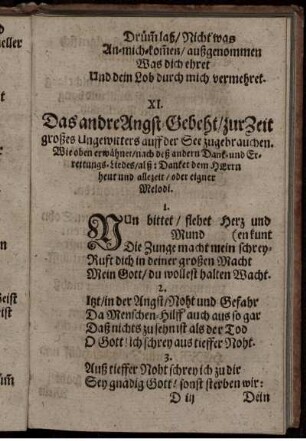 Drüm̃ laß/ Nicht was
An-mich-kom̃en/ außgenommen
Was dich ehret
Und dein Lob durch mich vermehret.
XI.
Das andre Angst-Gebeht/ zur Zeit
großes Ungewitters auff der See zugebrauchen.
Wie oben erwähnet/ nach deß andern Dank- und Er-
rettungs-Liedes/ alß: Danket dem HErrn
heut und allezeit/ oder eigner
Melodi.
1.
NUn bittet/ flehet Herz und
Mund (en kunt
Die Zunge macht mein schrey-
Ruft dich in deiner großen Macht
Mein Gott/ du wollest halten Wacht.
2.
Itzt/ in der Angst/ Noht und Gefahr
Da Menschen-Hilff auch aus so gar
Daß nichts zu sehn ist als der Tod
O Gott! ich schrey aus tieffer Noht.
3.
Auß tieffer Noht schrey ich zu dir
Sey gnädig Gott/ sonst sterben wir:
D iij Dein